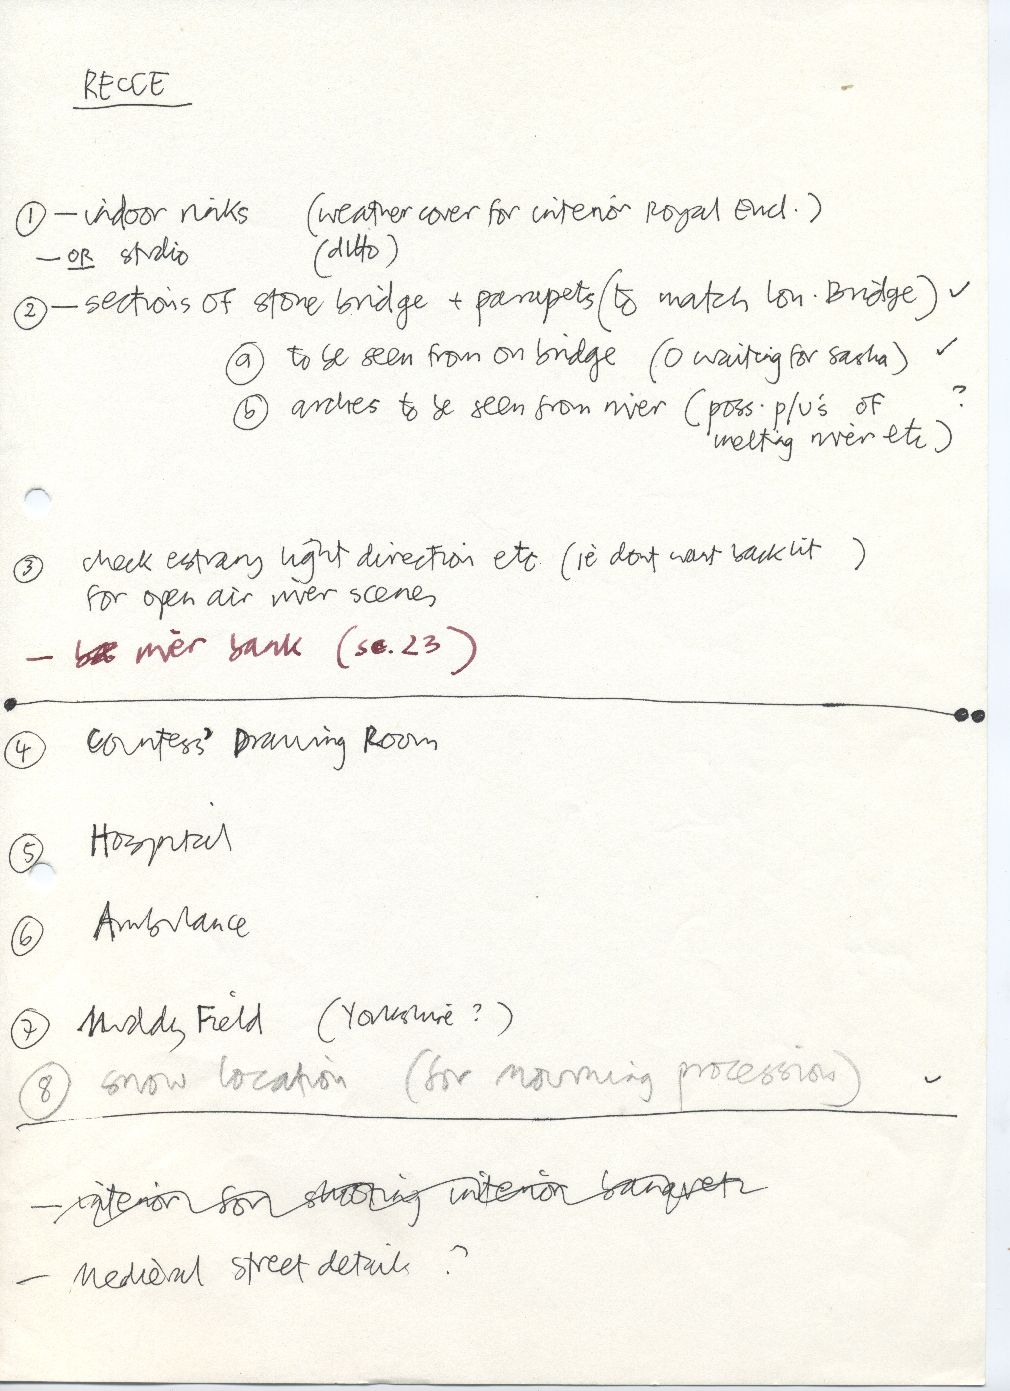 RECCE
① – indoor rinks (weather cover for interior Royal Encl.)
– OR studio (ditto)
② – sections of stone bridge + parapets (to match Lon. Bridge) ✓
ⓐ to be seen from on bridge (O waiting for Sasha) ✓
ⓑ arches to be seen from river (poss. p/u's of ?
melting river etc)
③ check estrany light direction etc. (ie dont want back lit )
for open air river scenes
– river bank (sc. 23)
④ Countess' Drawing Room
⑤ Hospital
⑥ Ambulance
⑦ Muddy Field (Yorkshire?)
⑧ snow location (for mourning procession) ✓
– interior for shooting interior banquet
– Medieval street details ?